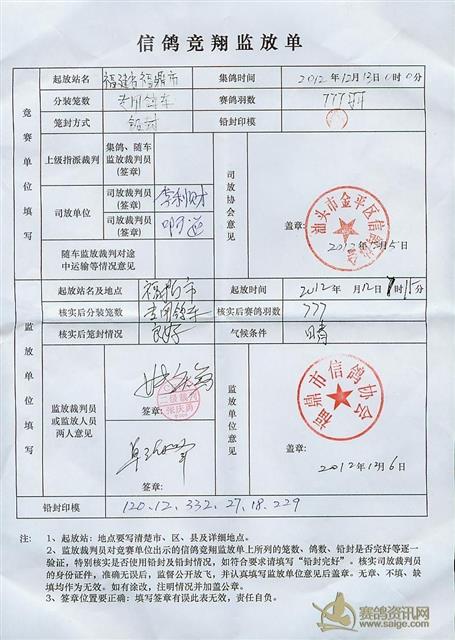 信鸽竞翔监放单
竞赛单位填写
起放站名 福建省福鼎市 集鸽时间 2012年12月13日0时0分
分装笼数 专用鸽车 赛鸽羽数 777羽
笼封方式 铅封 铅封印模
上级指派裁判 集鸽、随车监放裁判员(签章)
司放单位 司放裁判员(签章) 李利财
司放裁判员(签章)
司放协会意见
汕头市金平区信鸽
盖章:
随车监放裁判对途中运输等情况意见
监放单位填写
起放站名及地点 福鼎市 起放时间 2012年
核实后分装笼数 专用鸽车 核实后赛鸽羽数 777
核实后笼封情况 良好 气候条件 晴
监放裁判员或监放人员两人意见
二级裁判
张庆勇
签章:
签章:
监放单位意见
福鼎市信鸽协会
盖章:
2012年12月6日
铅封印模 120.12.332.27.18.229
注: 1、起放站:地点要写清楚市、区、县及详细地点。
2、监放裁判员对竞赛单位出示的信鸽竞翔监放单上所列的笼数、鸽数、铅封是否完好等逐一
验证,特别核实是否使用铅封及铅封情况,如符合要求请填写“铅封完好”。核实司放裁判员
的身份证件,准确无误后,监督公开放飞,并认真填写监放单位意见后盖章。无章、不填、缺
填均作为无效。如有涂改,注明情况并加盖公章。
3、签章位置要正确:填写签章有误此表无效,责任自负。
赛鸽资讯网
www.saige.com